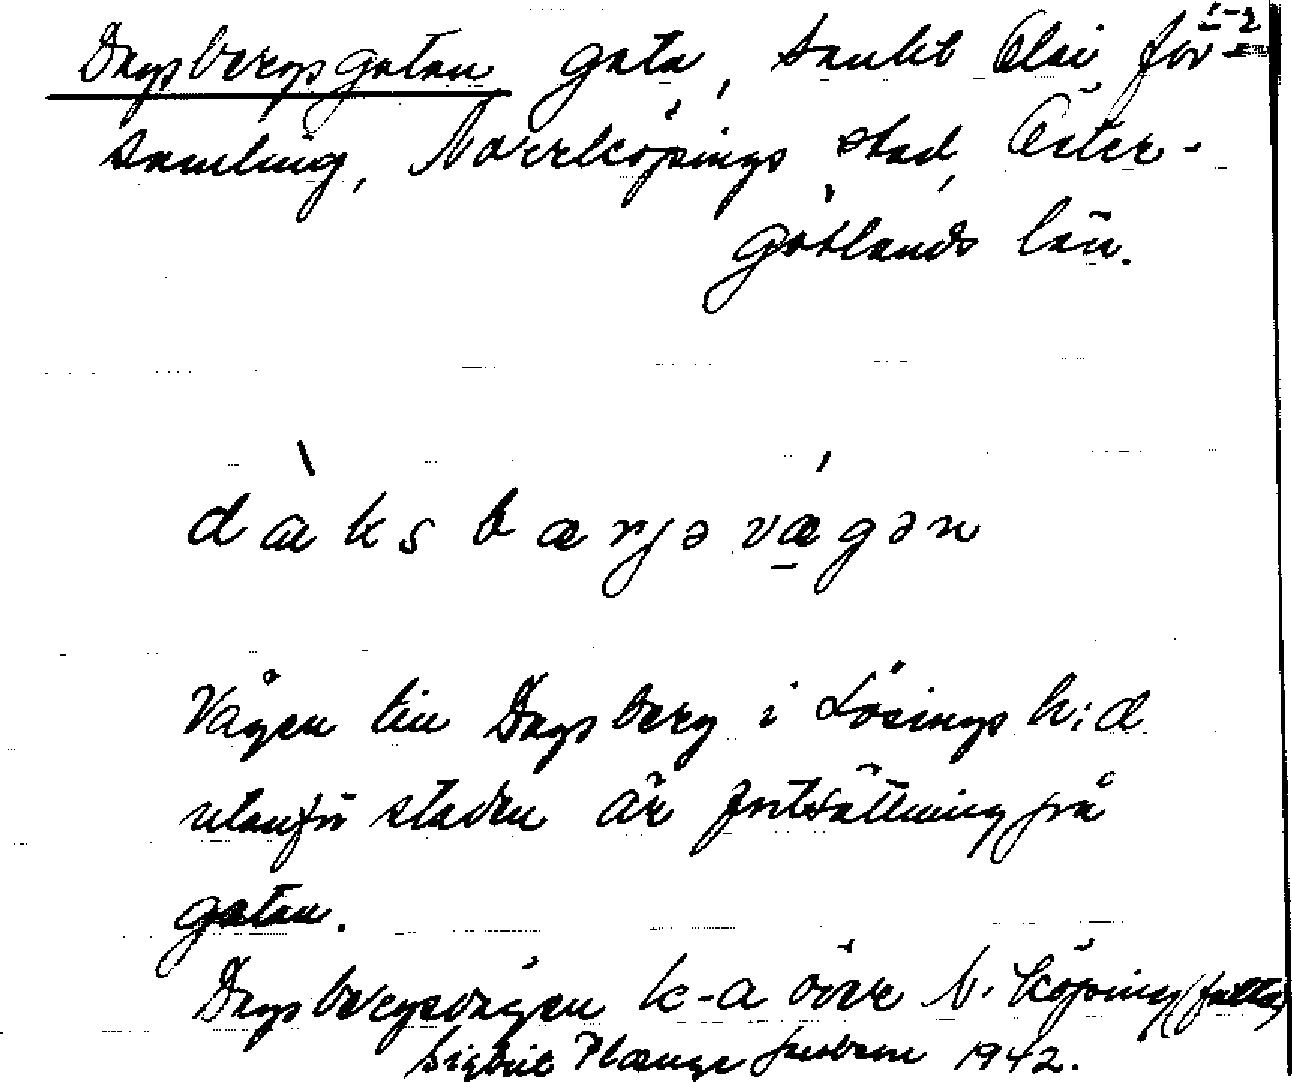 Dagsbergsgatan gata, Sankt Olai för-
samling, Norrköpings stad, Öster-
götlands län.
dàksbærjəvǽgən
Vägen till Dagsberg i Lösings h:d
utanför staden är fortsättning på
gatan.
Dagsbergsvägen k-a över N. Köping
1942.